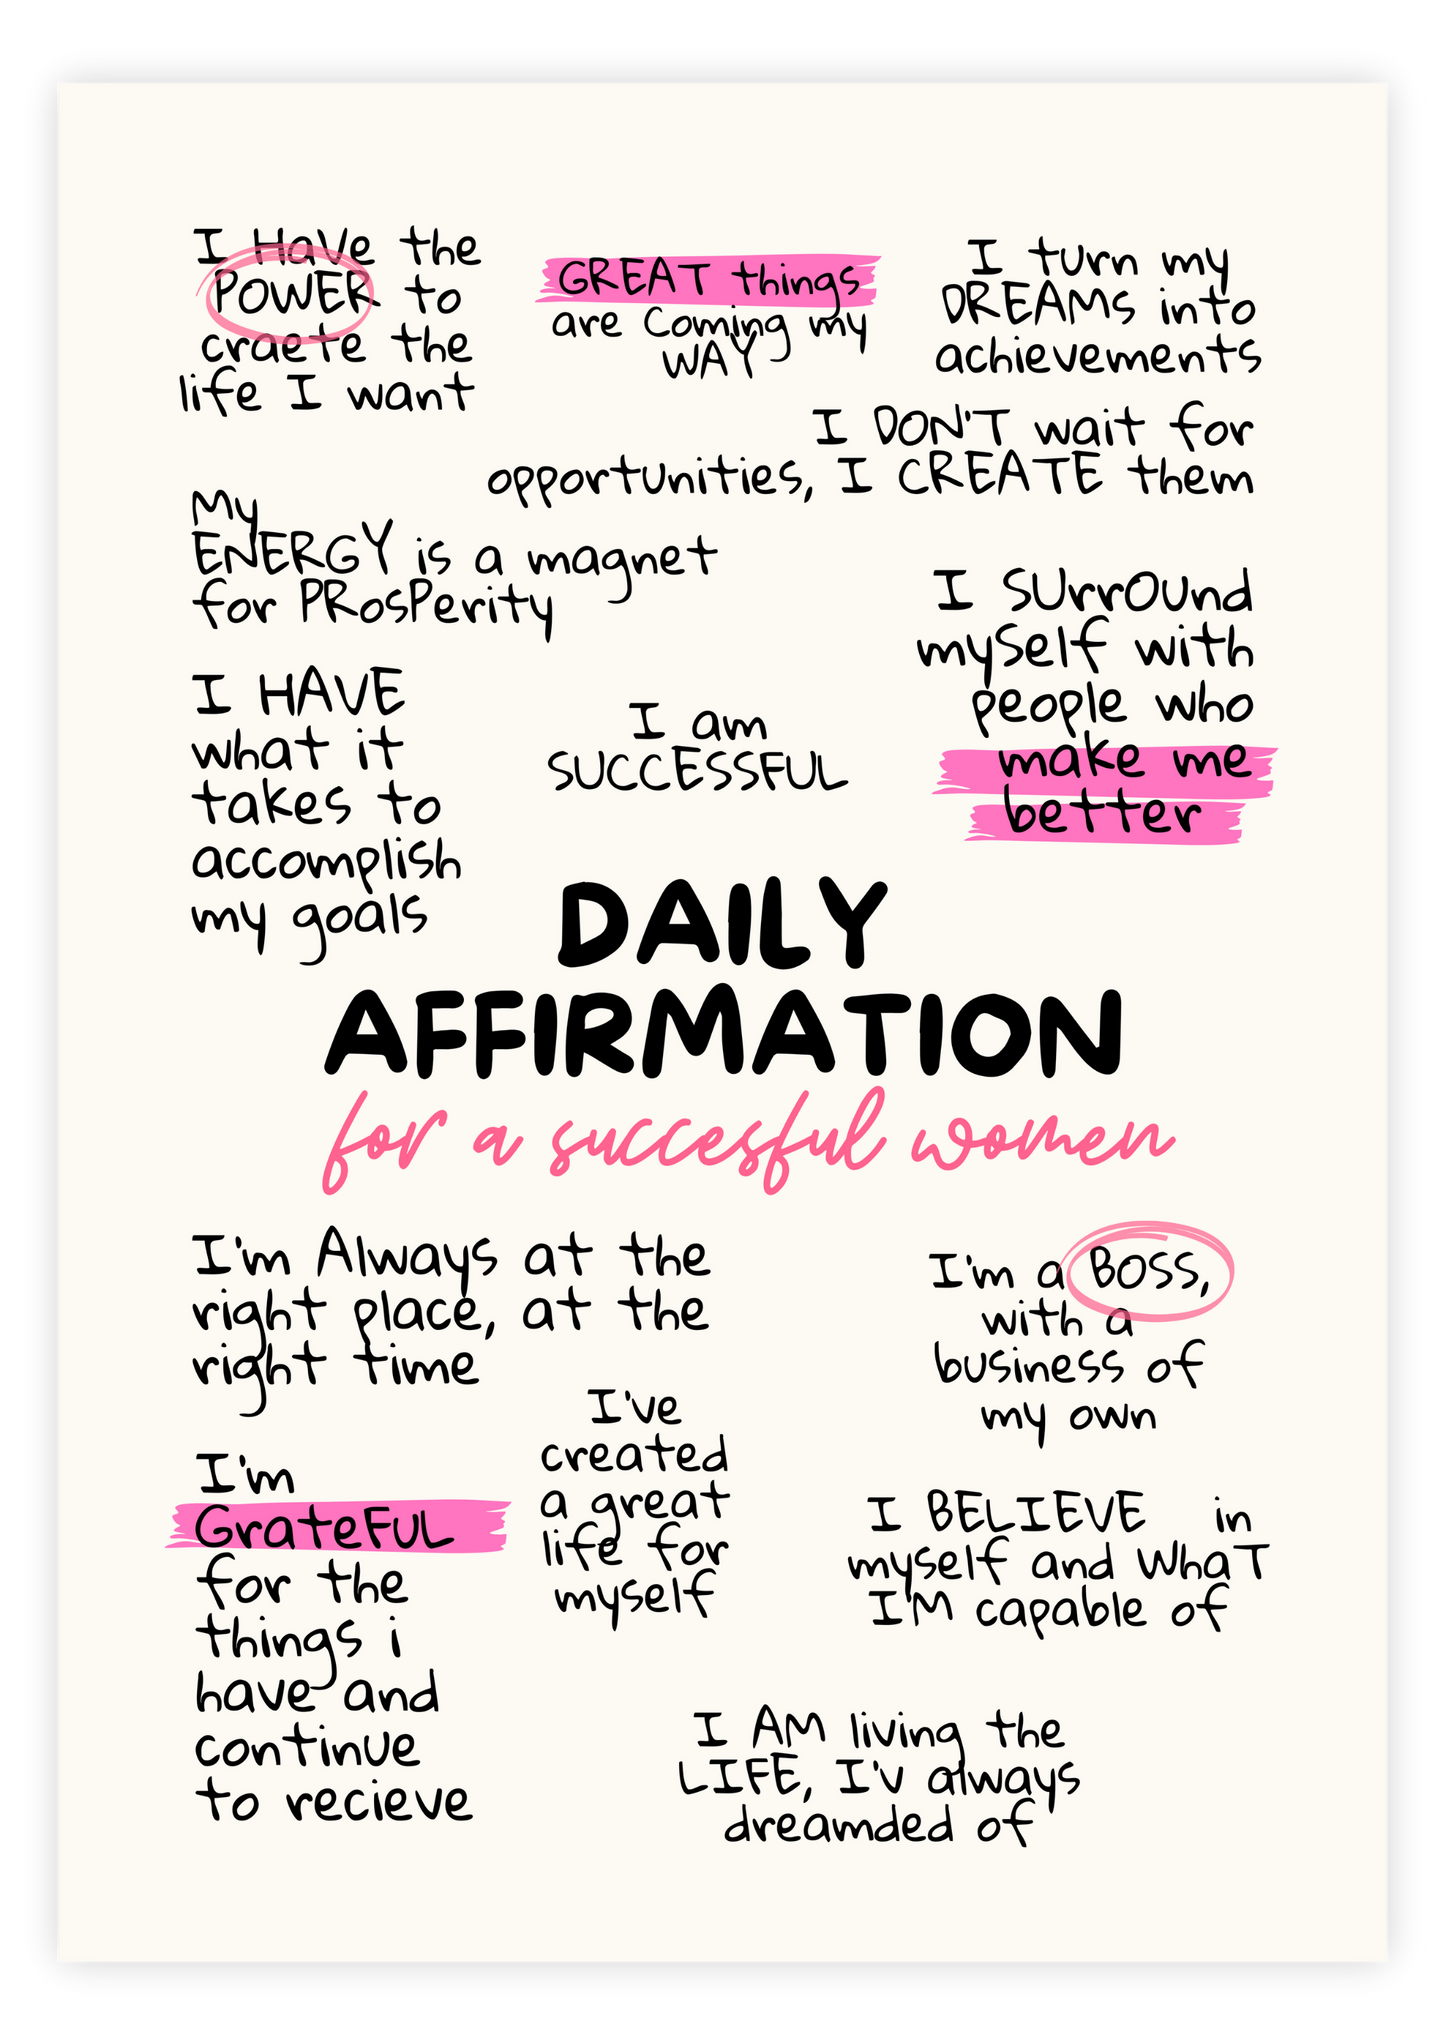 I Have the
POWER to
craete the
life I want
GREAT things
are Coming my
WAY
I turn my
DREAMS into
achievements
I DON'T wait for
opportunities, I CREATE them
My
ENERGY is a magnet
for PRosPerity
I SUrrOUnd
mySelf with
people who
make me
better
I HAVE
what it
takes to
accomplish
my goals
I am
SUCCESSFUL
DAILY
AFFIRMATION
for a succesful women
I'm Always at the
right place, at the
right time
I'm a BOSS,
with a
business of
my own
I've
created
a great
life for
myself
I'm
GrateFUL
for the
things i
have and
continue
to recieve
I BELIEVE in
myself and WhaT
I'M capable of
I AM living the
LIFE, I'V always
dreamded of